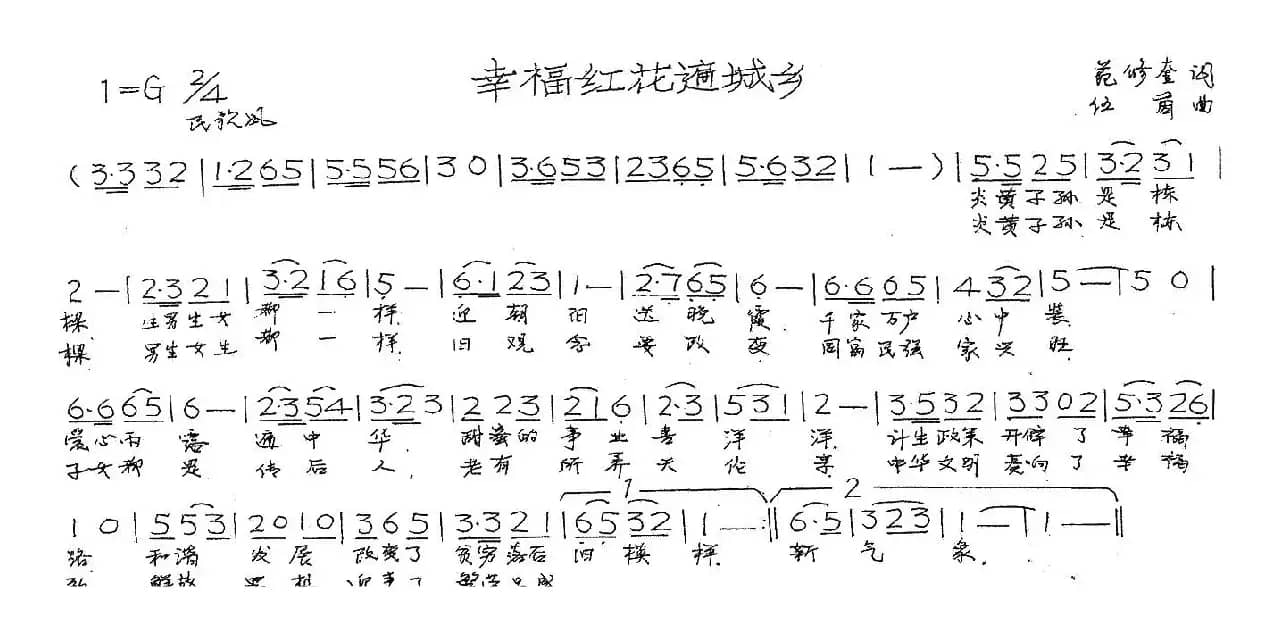 幸福红花遍城乡
1=G 2/4
范修奎 词
民歌风
伍 曲
(3·332|1·265|5·556|30|3·653|2365|5·632|(—)|5·525|3·231|
炎黄子孙是栋
炎黄子孙是栋
2—|2·321|3·216|5—|6·123|1—|2·765|6—|6·605|432|5—|50|
樑 生男生女都一样 迎朝阳 送晚霞 千家万户心中装
樑 男生女生都一样 旧观念要改变 国富民强家兴旺
6·665|6—|2·354|3·23|223|216|2·3|531|2—|3532|3302|5·326|
爱心雨露遍中华 甜蜜的事业喜洋洋 计生政策开辟了幸福
子女都是传后人 老有所养天伦享 中华文明奏响了幸福
10|553|2010|365|3·321|6532|1—:‖6·5|323|1—|1—‖
1 2
路 和谐发展 改变了贫穷落后旧模样 新气象